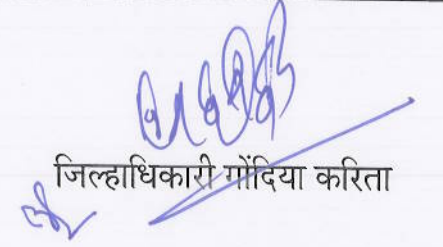 जिल्हाधिकारी गोंदिया करिता